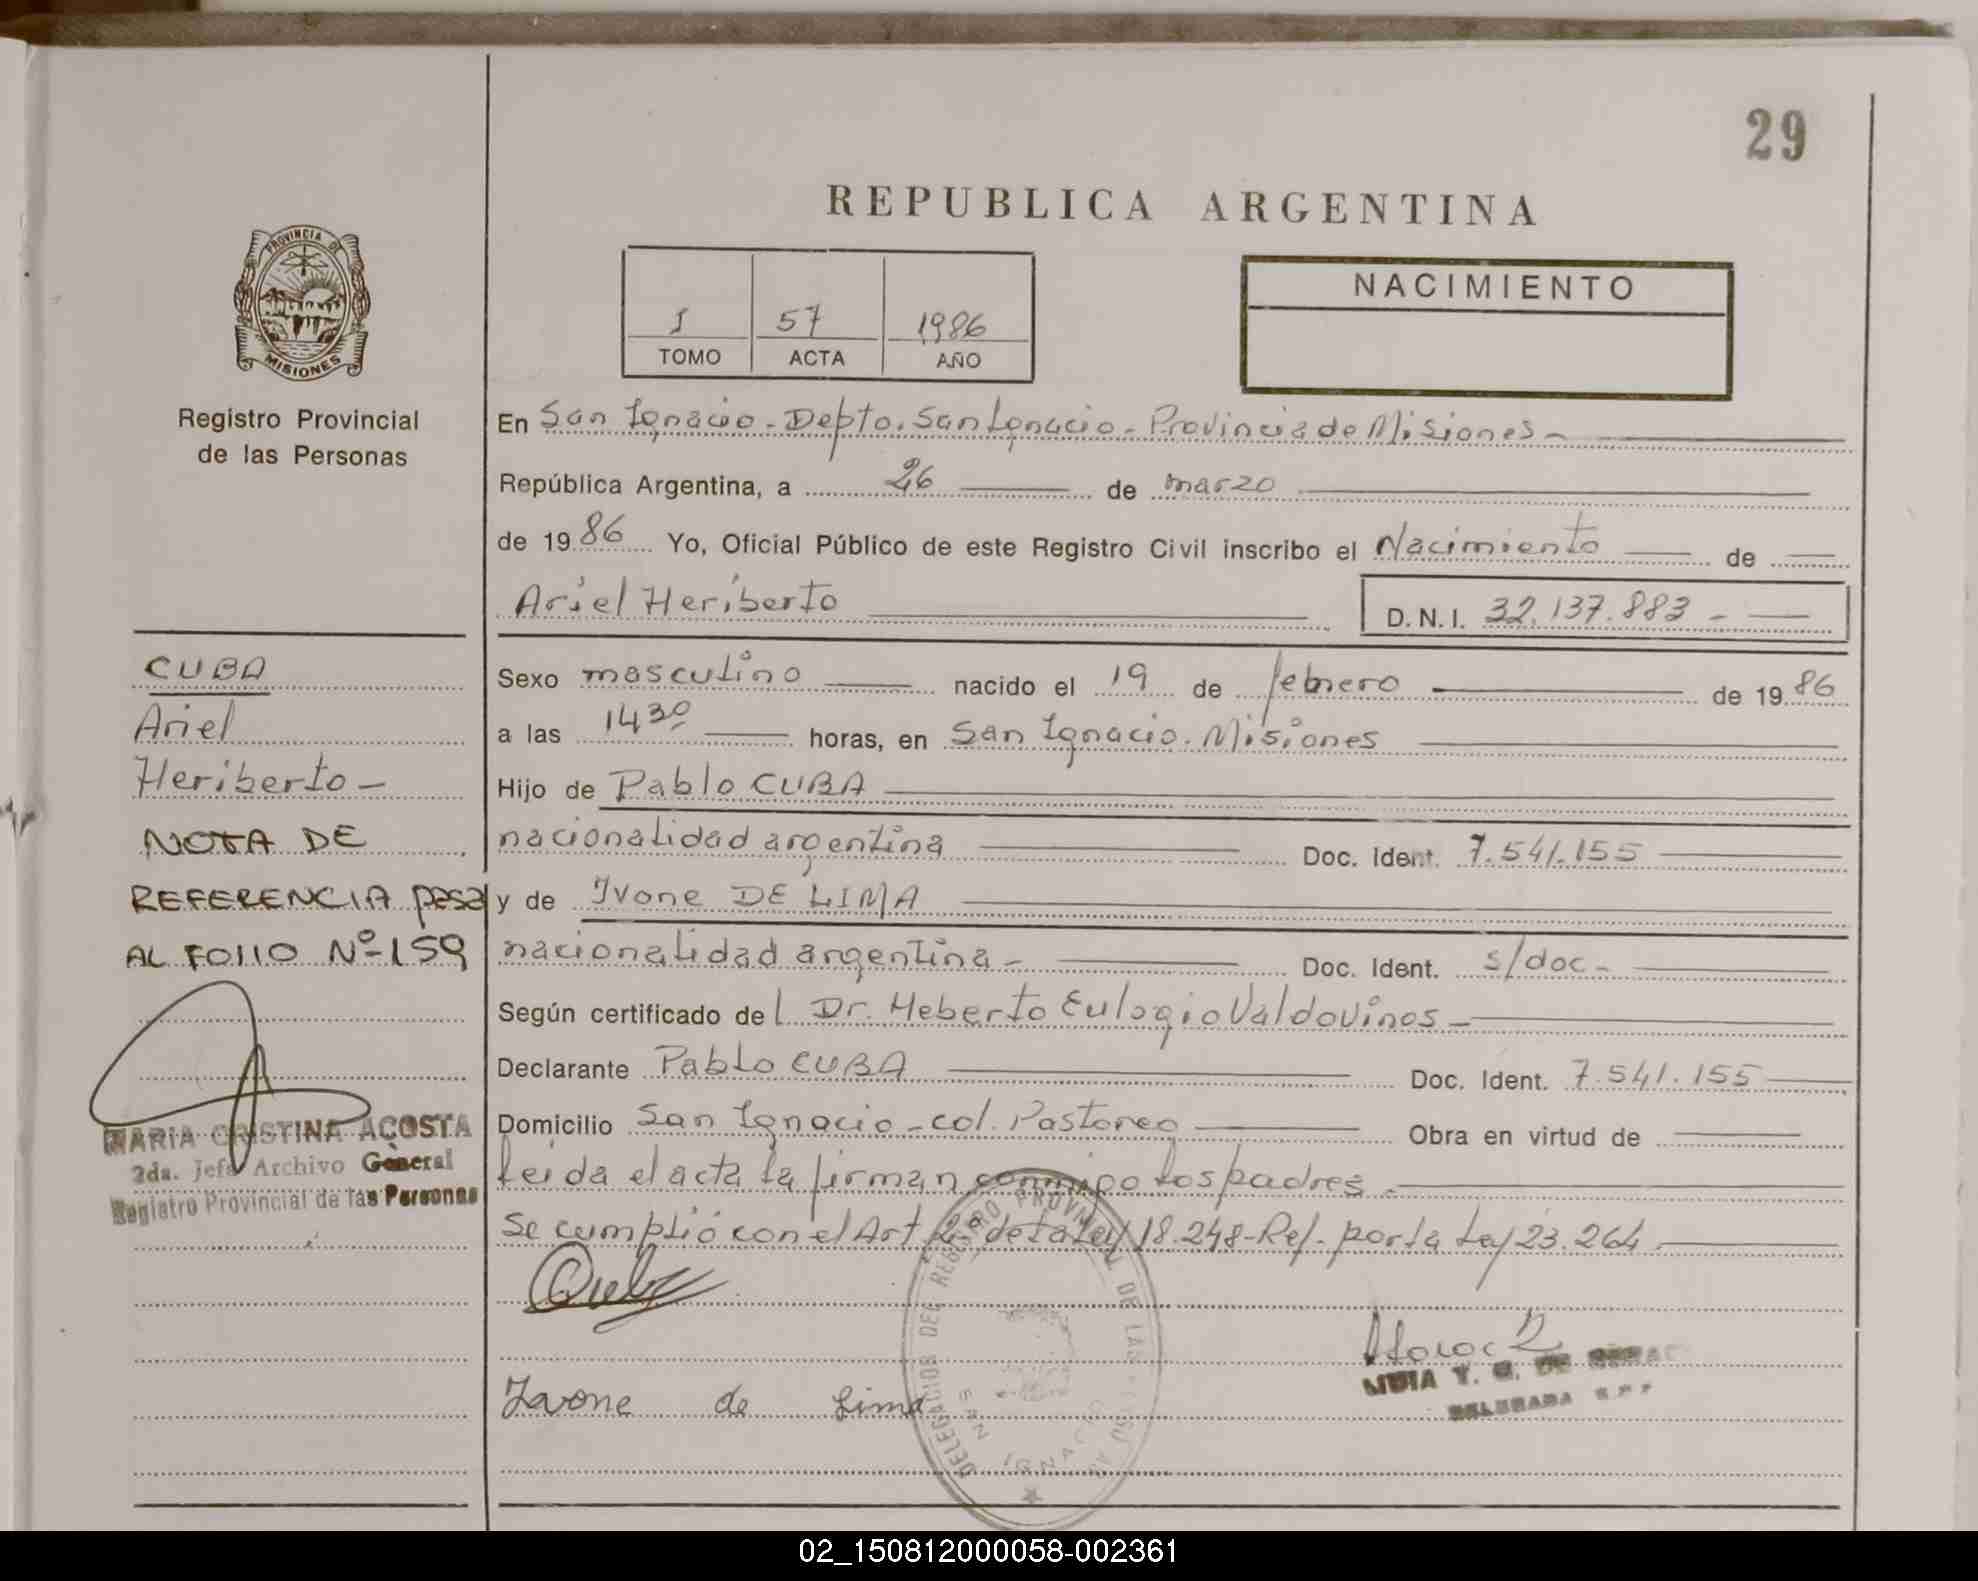 29
REPUBLICA ARGENTINA
PROVINCIA DE
MISIONES
Registro Provincial
de las Personas
I 57 1986
TOMO ACTA AÑO
NACIMIENTO
En San Ignacio - Depto. San Ignacio - Provincia de Misiones -
República Argentina, a 26 de marzo
de 1986 Yo, Oficial Público de este Registro Civil inscribo el Nacimiento de
Ariel Heriberto D.N.I. 32.137.883 -
Sexo masculino nacido el 19 de febrero de 1986
a las 14 30 horas, en San Ignacio. Misiones
Hijo de Pablo CUBA
nacionalidad argentina Doc. Ident. 7.541.155
y de Ivone DE LIMA
nacionalidad argentina - Doc. Ident. s/doc -
Según certificado del Dr. Heberto Eulogio Valdovinos -
Declarante Pablo CUBA Doc. Ident. 7.541.155
Domicilio San Ignacio - col. Pastoreo Obra en virtud de
Leida el acta la firman conmigo los padres -
Se cumplió con el Art 2º de la Ley 18.248 - Ref. por la Ley 23.264
Ivone de Lima
DELEGADA
CUBA
Ariel
Heriberto -
NOTA DE
REFERENCIA pasa
AL FOLIO Nº 159
MARIA CRISTINA ACOSTA
2da. Jefe Archivo General
Registro Provincial de las Personas
SAN IGNACIO
02_150812000058-002361